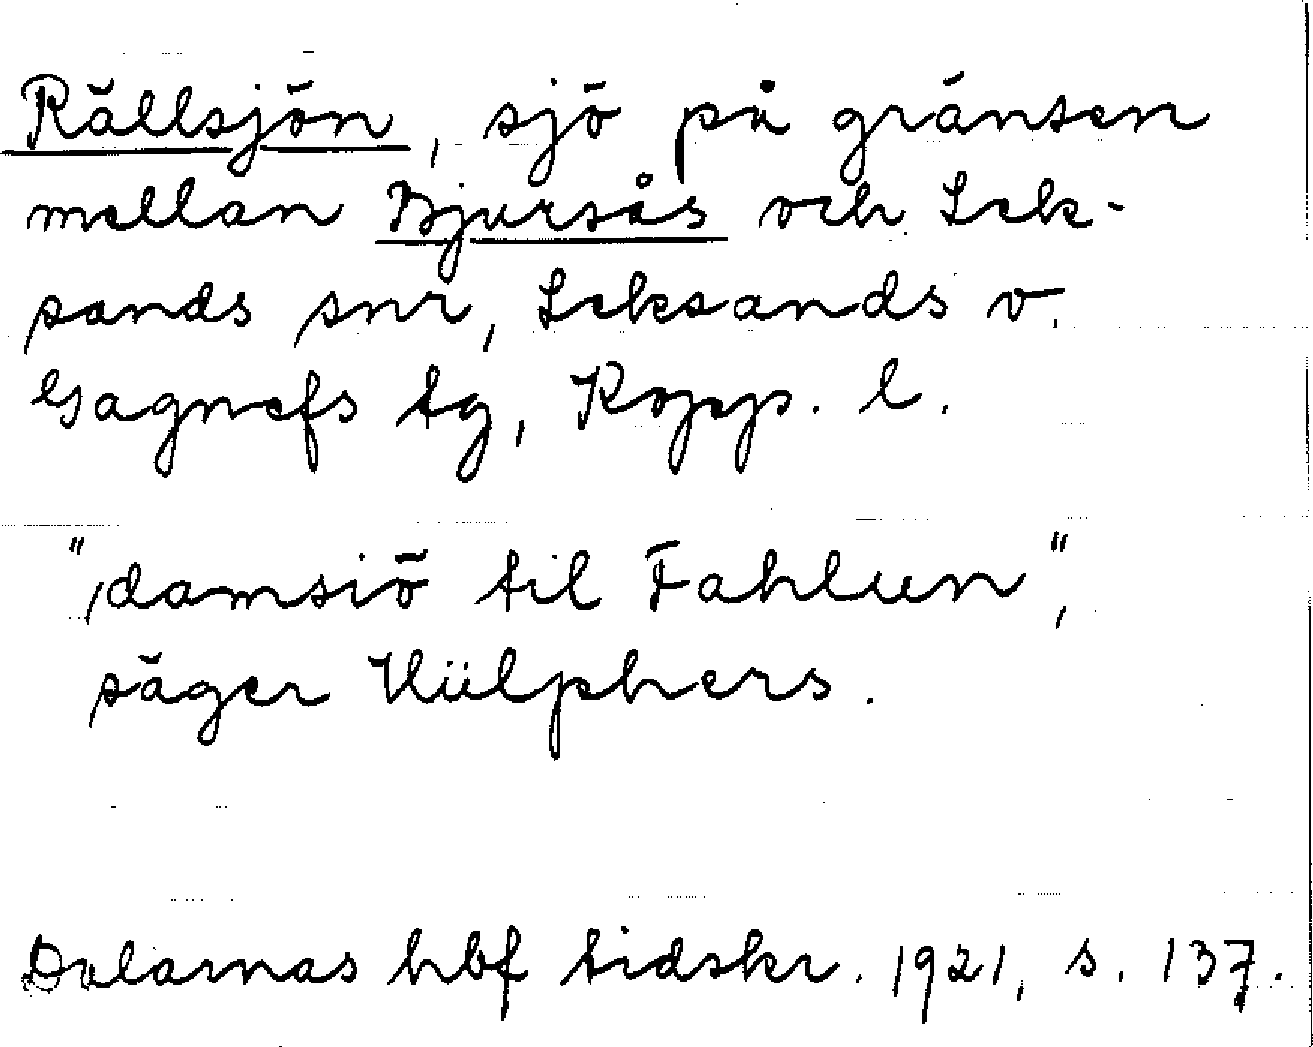 Rällsjön, sjö på gränsen
mellan Bjursås och Lek-
sands snr, Leksands v.
Gagnefs tg, Kopp. l.
"damsiö til Fahlun",
säger Hülphers.
Dalarnas hbf tidskr. 1921, s. 137.